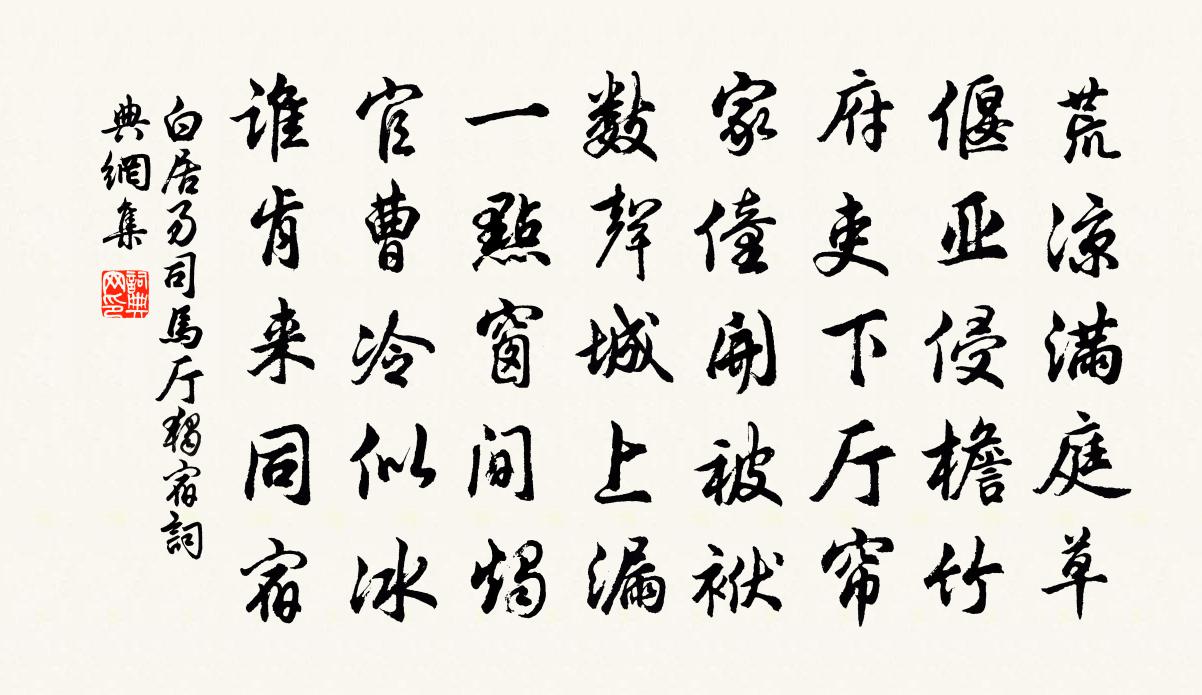 荒凉满庭草
偃亚侵檐竹
府吏下厅帘
家僮開被袱
數聲城上漏
一點窗间燭
官曹冷似冰
谁肯来同宿
白居易司馬厅獨宿詞
典網集
詞典
网印